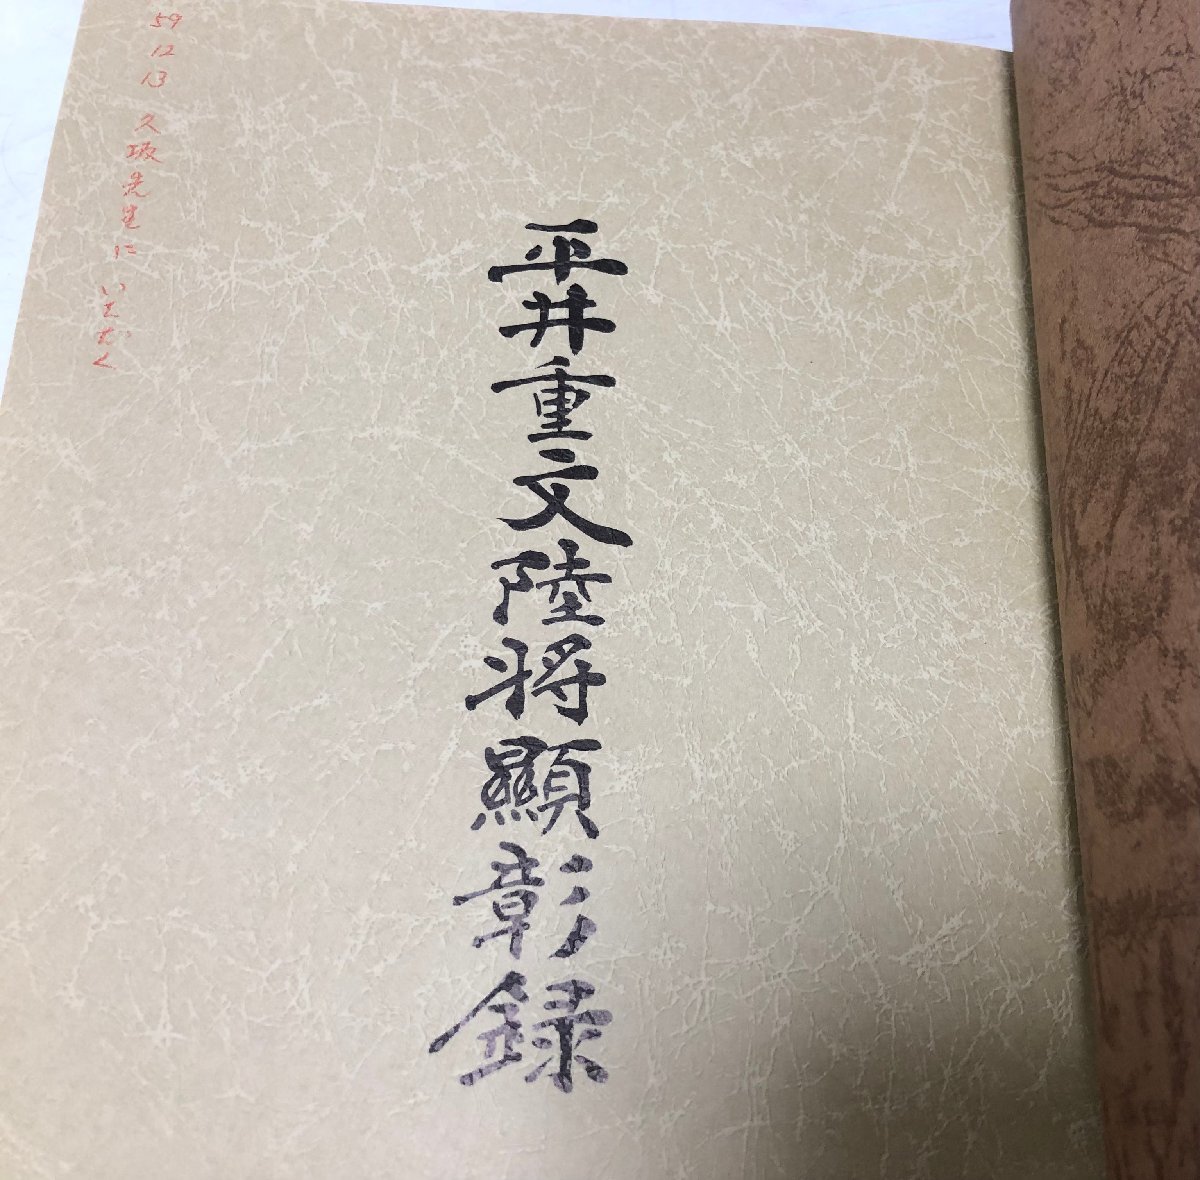 平井重文陸将顯彰録
59
12
13
久坂先生にいただく